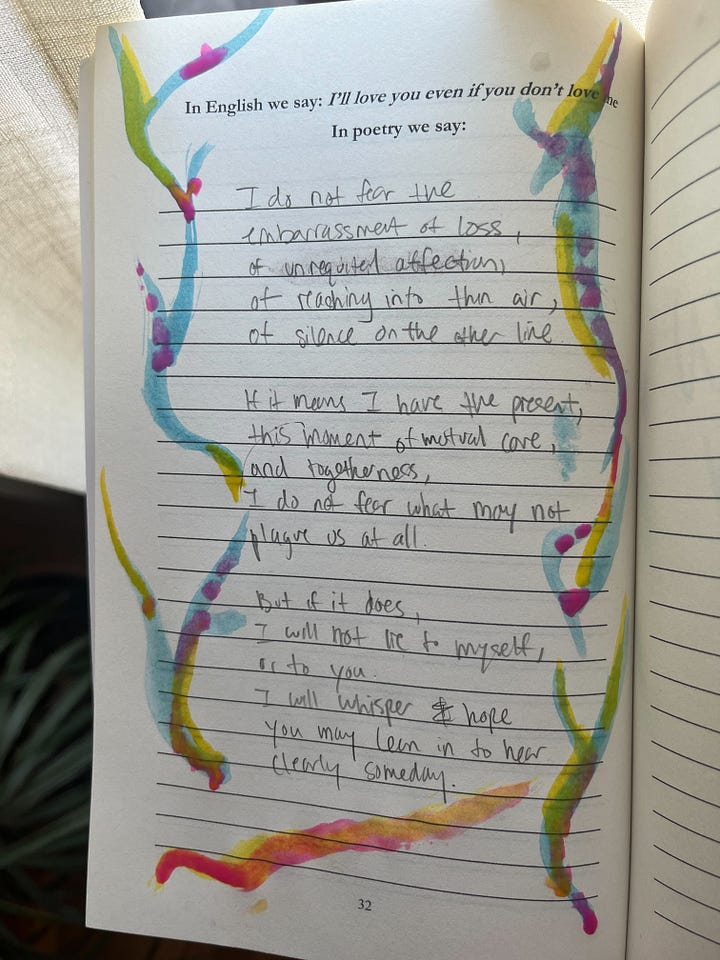 In English we say: I'll love you even if you don't love me
In poetry we say:
I do not fear the
embarrassment of loss,
of unrequited affection,
of reaching into thin air,
of silence on the other line.
If it means I have the present,
this moment of mutual care,
and togetherness,
I do not fear what may not
plague us at all.
But if it does,
I will not lie to myself,
or to you.
I will whisper & hope
you may lean in to hear
clearly someday.
32